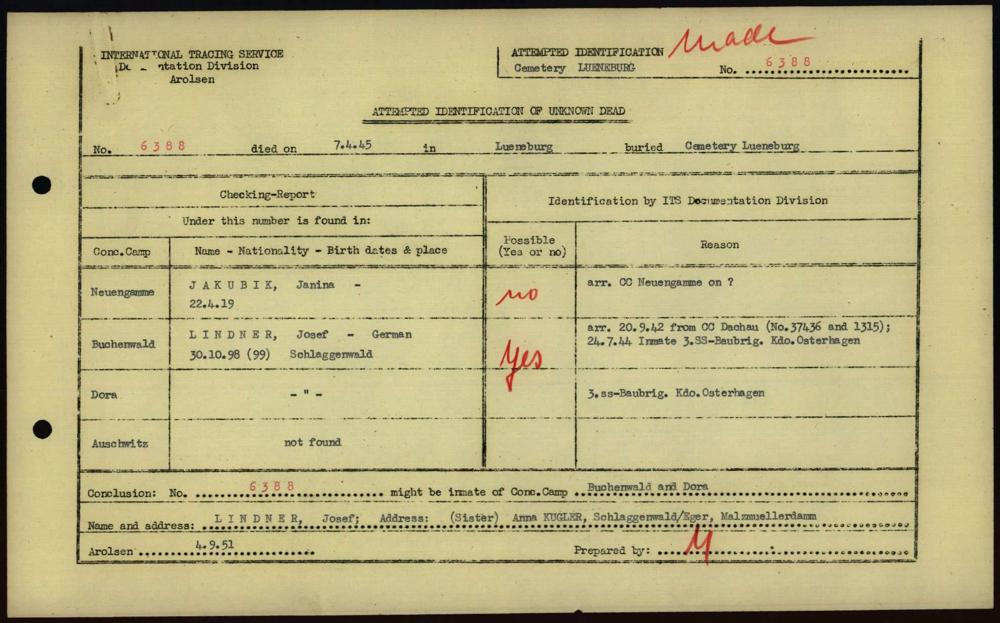 INTERNATIONAL TRACING SERVICE
Documentation Division
Arolsen
ATTEMPTED IDENTIFICATION made
Cemetery LUENEBURG No. 6388
ATTEMPTED IDENTIFICATION OF UNKNOWN DEAD
No. 6388 died on 7.4.45 in Lueneburg buried Cemetery Lueneburg
Checking-Report
Identification by ITS Documentation Division
Under this number is found in:
Conc.Camp Name - Nationality - Birth dates & place Possible (Yes or no) Reason
Neuengamme JAKUBIK, Janina - no arr. CC Neuengamme on ?
22.4.19
Buchenwald LINDNER, Josef - German Yes arr. 20.9.42 from CC Dachau (No.37436 and 1315);
30.10.98 (99) Schlaggenwald 24.7.44 Inmate 3.SS-Baubrig. Kdo.Osterhagen
Dora - " - 3.ss-Baubrig. Kdo.Osterhagen
Auschwitz not found
Conclusion: No. 6388 might be inmate of Conc.Camp Buchenwald and Dora
Name and address: LINDNER, Josef; Address: (Sister) Anna KUGLER, Schlaggenwald/Eger, Malzmuellerdamm
Arolsen 4.9.51 Prepared by: